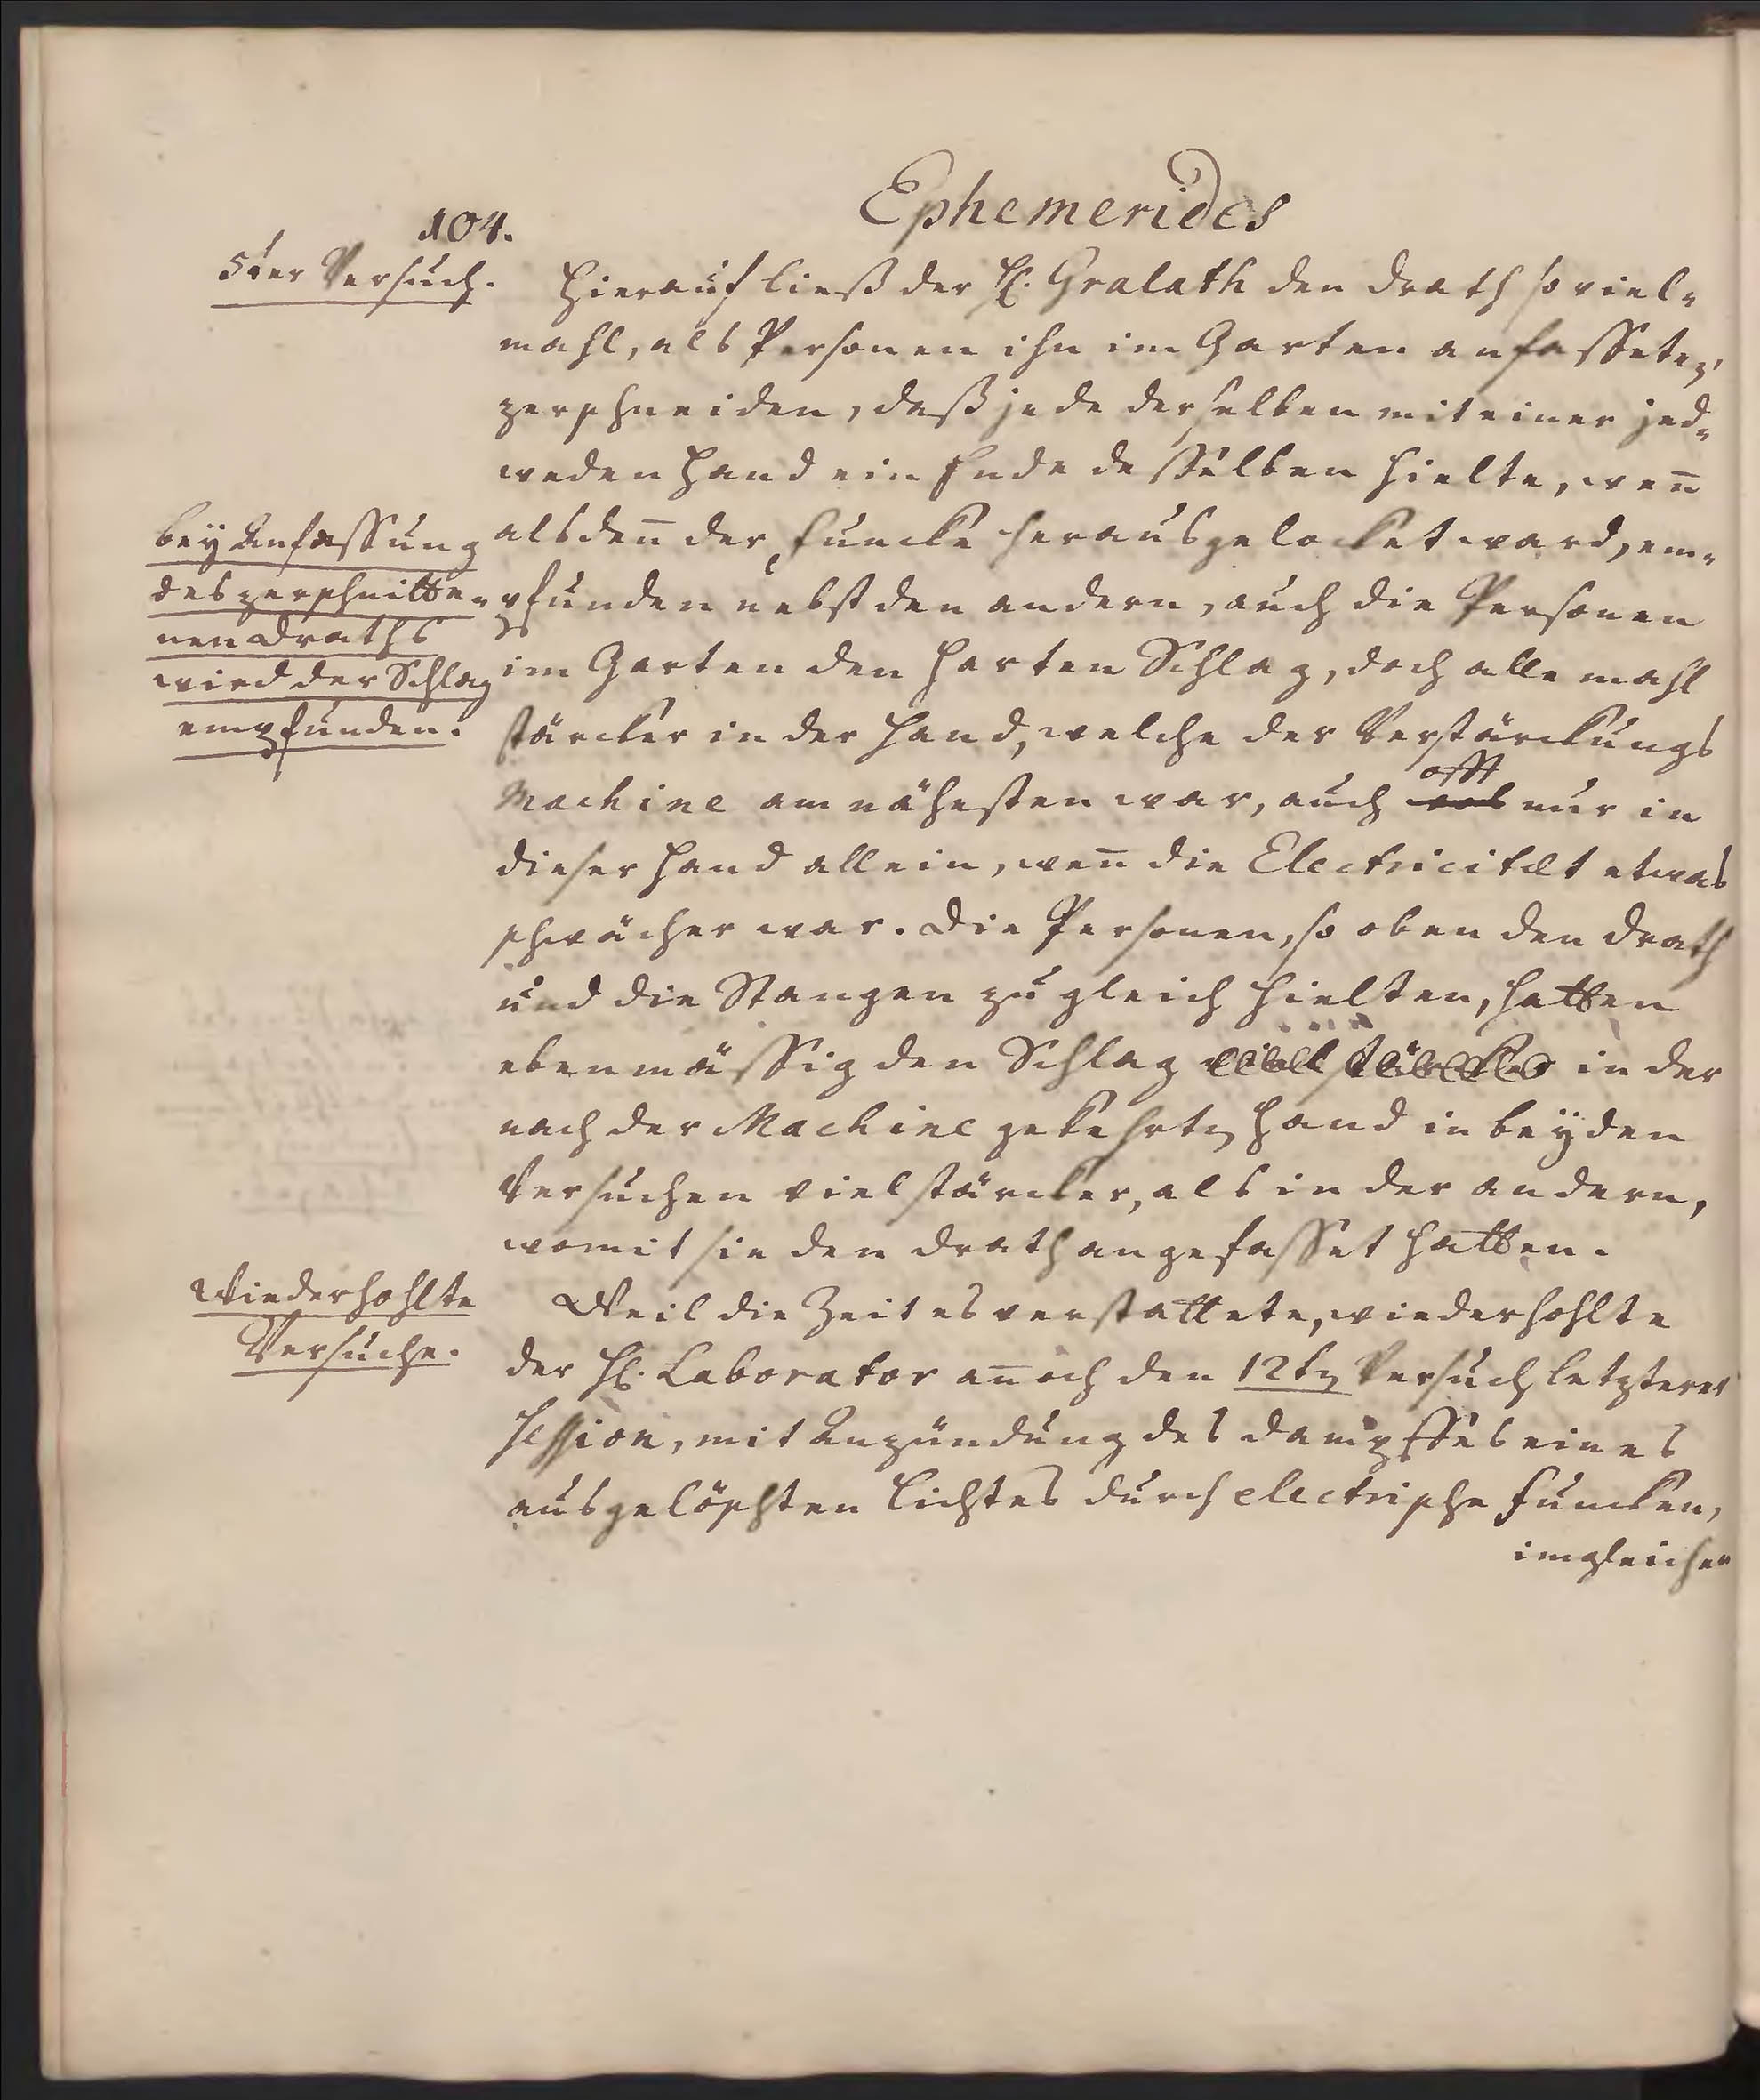 Ephemerides
104.
5ter Versuch.
Hierauf ließ der H. Gralath den Drath so viel-
mahl, als Personen ihn im Garten anfasseten,
zerschneiden, daß jede derselben mit einer jed-
weden Hand ein Ende desselben hielte, wen̄
alsden̄ der Funcke herausgelocket ward, em-
pfunden nebst den andern, auch die Personen
im Garten den harten Schlag, doch alle mahl
stärcker in der Hand, welche der Verstärckungs
Machine am nähesten war, auch offt nur in
dieser Hand allein, wen̄ die Electricitæt etwas
schwächer war. Die Personen, so oben den Drath
und die Stangen zu gleich hielten, hatten
ebenmässig den Schlag viel stärcker in der
nach der Machine gekehrten Hand in beyden
Versuchen viel stärcker, als in der andern,
womit sie den Drath angefasset hatten.
bey Anfassung
des zerschnitte-
nen Draths
wird der Schlag
empfunden.
Wiederhohlte
Versuche.
Weil die Zeit es verstattete, wiederhohlte
der H. Laborator an̄och den 12ten Versuch letzterer
Session, mit Anzündung des Dampffes eines
ausgelöschten Lichtes durch electrische Funcken,
imgleichen